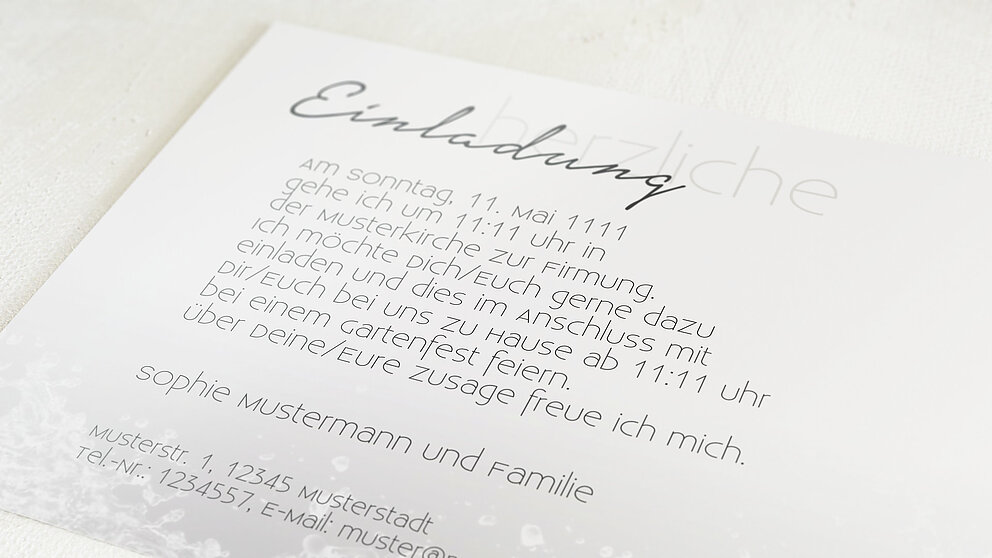 herzliche
Einladung
Am Sonntag, 11. Mai 1111
gehe ich um 11:11 Uhr in
der Musterkirche zur Firmung.
Ich möchte Dich/Euch gerne dazu
einladen und dies im Anschluss mit
Dir/Euch bei uns zu Hause ab 11:11 Uhr
bei einem Gartenfest feiern.
Über Deine/Eure Zusage freue ich mich.
Sophie Mustermann und Familie
Musterstr. 1, 12345 Musterstadt
Tel.-Nr.: 1234557, E-Mail: muster@